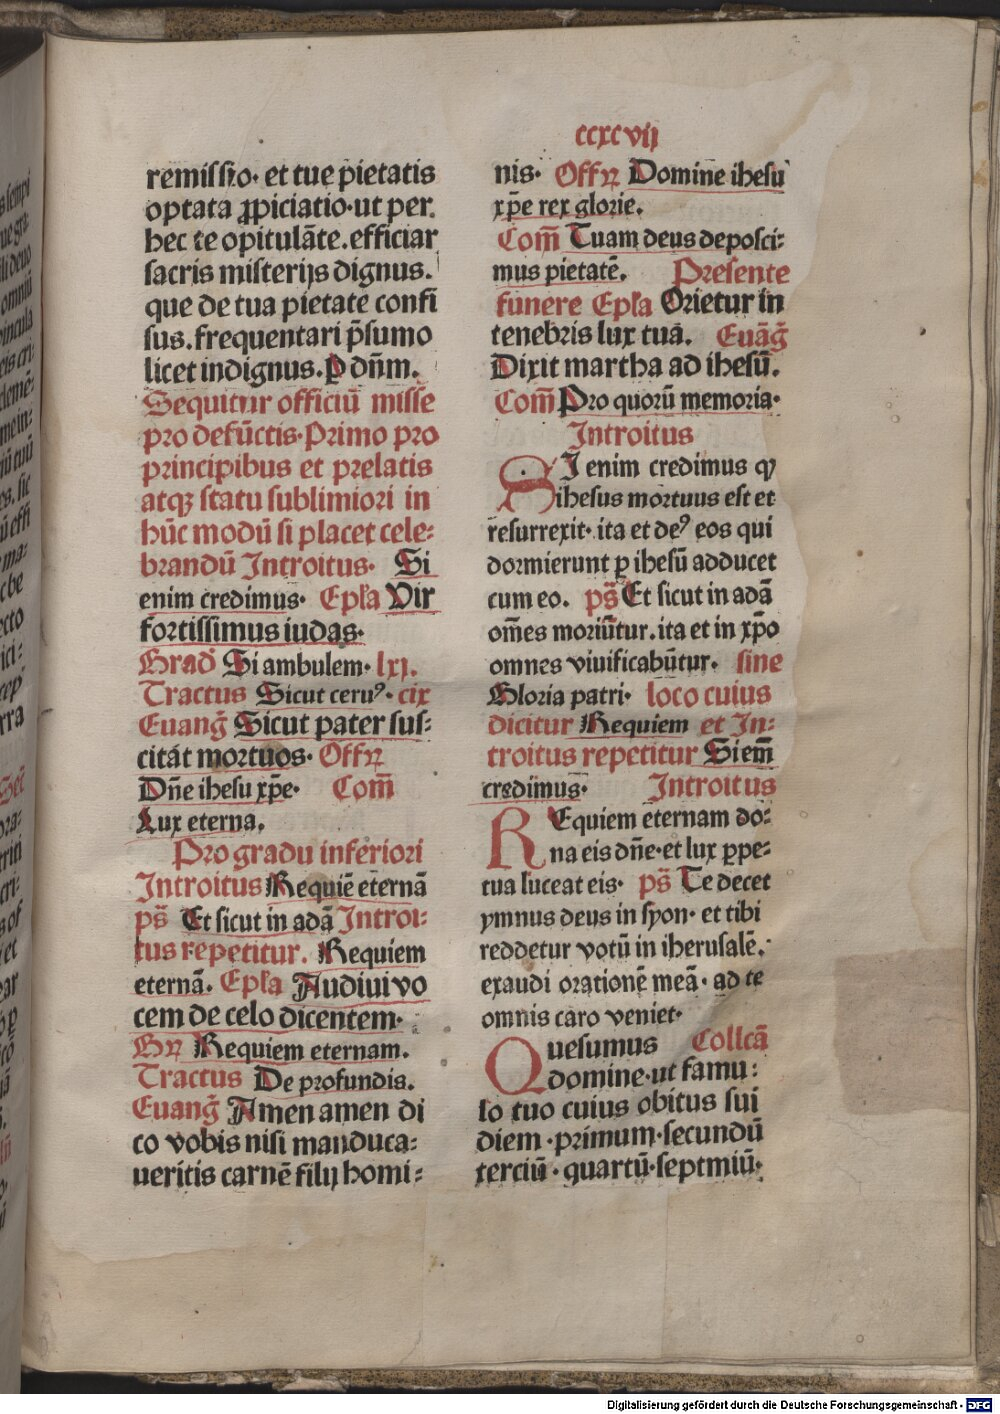 ccxcvij
remissio· et tue pietatis
optata ꝓpiciatio·ut per
hec te opitulāte.efficiar
sacris misterijs dignus.
que de tua pietate confi
sus.frequentari p̄sumo
licet indignus.ꝑ dn̄m.
Sequitur officiū misse
pro defūctis·Primo pro
principibus et prelatis
atqꝫ statu sublimiori in
hūc modū si placet cele⸗
brandū Introitus· Si
enim credimus· Ep̄la Vir
fortissimus iudas·
Grad̄ Si ambulem· lxj.
Tractus Sicut ceruꝰ· cix
Euanḡ Sicut pater sus⸗
citat mortuos· Offꝝ
Dn̄e ihesu xp̄e· Com̄
Lux eterna.
Pro gradu inferiori
Introitus Requiē eternā
ps̄ Et sicut in adā Introi⸗
tus repetitur. Requiem
eternā. Ep̄la Audiui vo
cem de celo dicentem·
Gꝝ Requiem eternam.
Tractus De profundis.
Euanḡ Amen amen di
co vobis nisi manduca⸗
ueritis carnē filij homi⸗
nis· Offꝝ Domine ihesu
xp̄e rex glorie.
Com̄ Tuam deus deposci⸗
mus pietatē. Presente
funere Ep̄la Orietur in
tenebris lux tua. Euāḡ
Dixit martha ad ihesū.
Com̄ Pro quorū memoria·
Introitus
SI enim credimus ꝙ
ihesus mortuus est et
resurrexit· ita et deꝰ eos qui
dormierunt ꝑ ihesū adducet
cum eo. ps̄ Et sicut in adā
om̄es moriūtur.ita et in xp̄o
omnes viuificabūtur. sine
Gloria patri· loco cuius
dicitur Requiem et In⸗
troitus repetitur Si em̄
credimus· Introitus
REquiem eternam do⸗
na eis dn̄e·et lux ꝑpe⸗
tua luceat eis· ps̄ Te decet
ymnus deus in syon· et tibi
reddetur votū in iherusalē.
exaudi orationē meā· ad te
omnis caro veniet·
Quesumus Collcā
domine·ut famu⸗
lo tuo cuius obitus sui
diem·primum·secundū
terciū· quartū·septmiū·
Digitalisierung gefördert durch die Deutsche Forschungsgemeinschaft - DFG